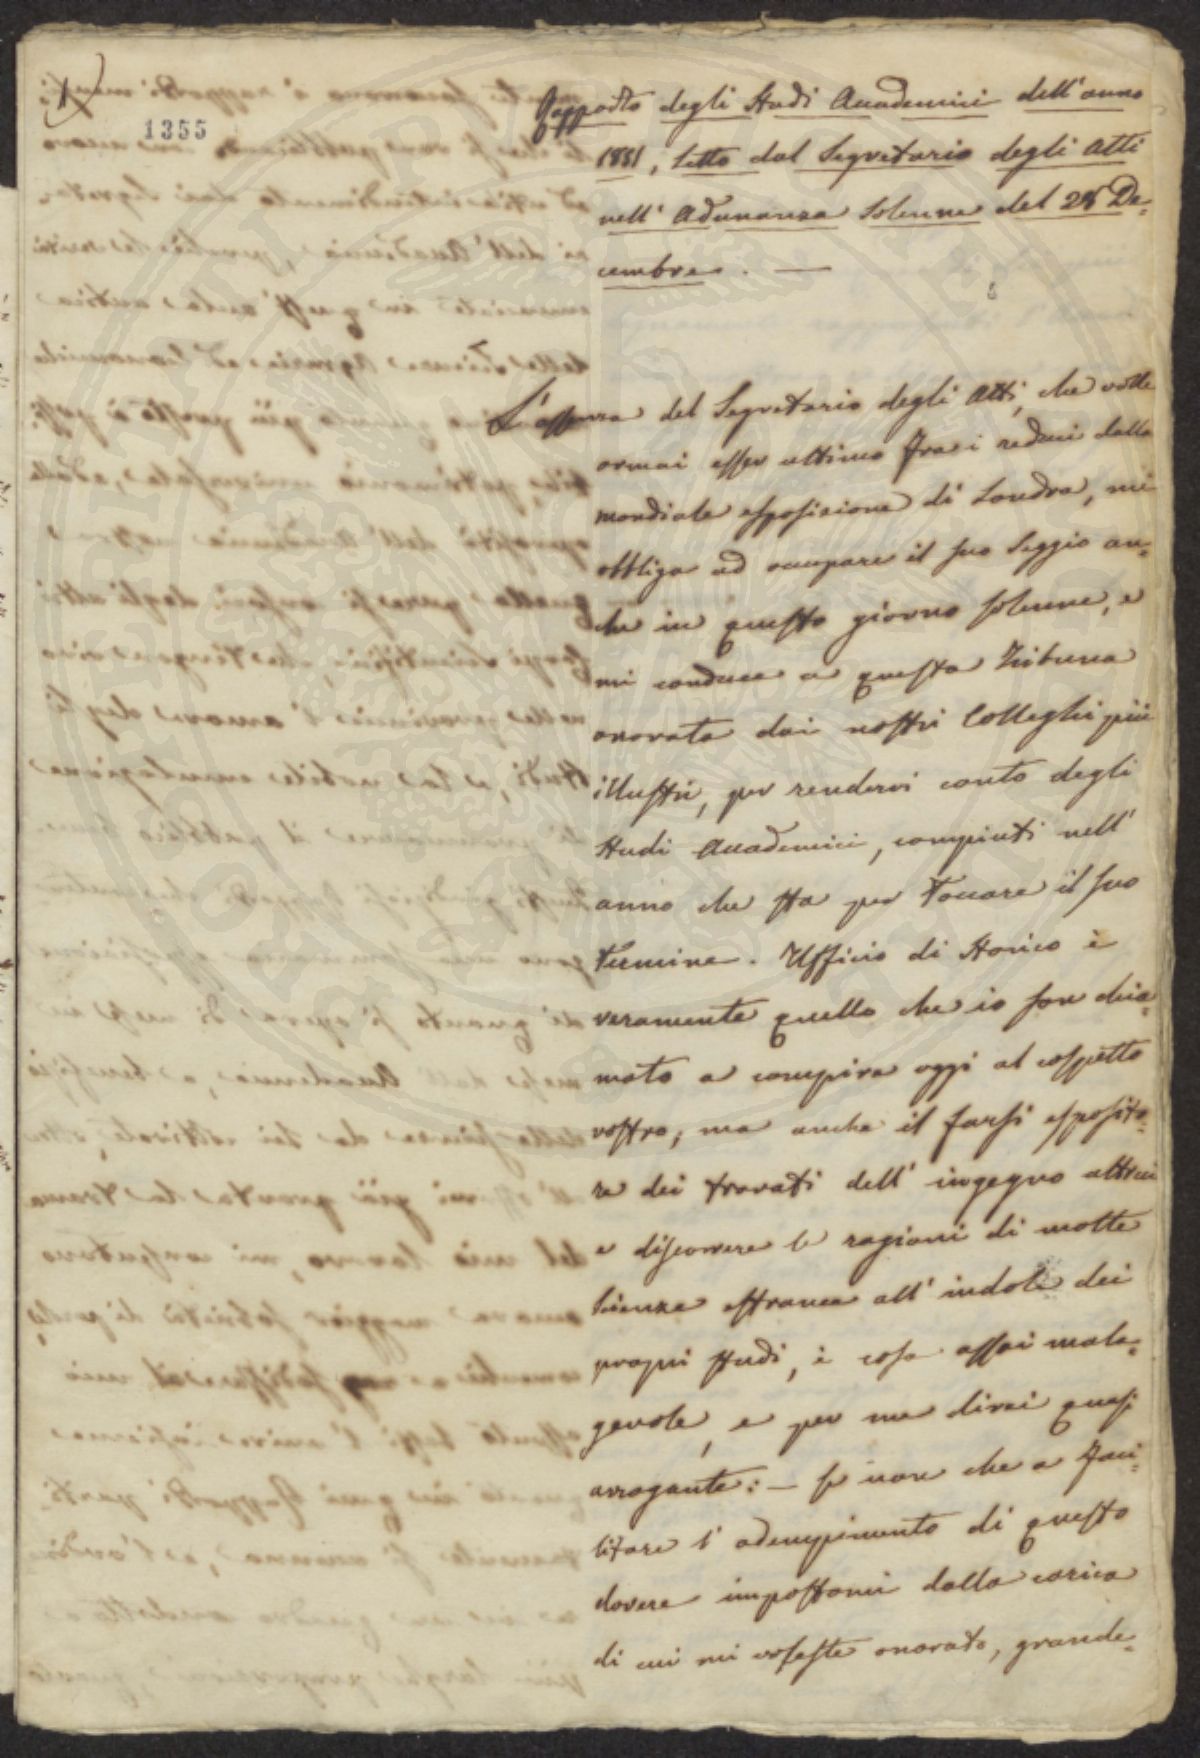 1)
1355
Rapporto degli Studi Accademici dell'anno
1851, letto dal Segretario degli Atti
nell'Adunanza Solenne del 28 De-
cembre. —
L'assenza del Segretario degli Atti, che volle
ormai esser ultimo fra i reduci dalla
mondiale esposizione di Londra, mi
obbliga ad occupare il suo Seggio an-
che in questo giorno solenne, e
mi conduce a questa Tribuna
onorata dai nostri Colleghi più
illustri, per rendervi conto degli
Studi Accademici, compiuti nell'
anno che sta per toccare il suo
termine. Ufficio di Storico è
veramente quello che io son chia-
mato a compire oggi al cospetto
vostro; ma anche il farsi esposito-
re dei trovati dell'ingegno altrui
e discorrere le ragioni di molte
Scienze estranee all'indole dei
propri studi, è cosa assai mala-
gevole, e per me direi quasi
arrogante: — se non che a faci-
litare l'adempimento di questo
dovere impostomi dalla carica
di cui mi voleste onorato, grande-